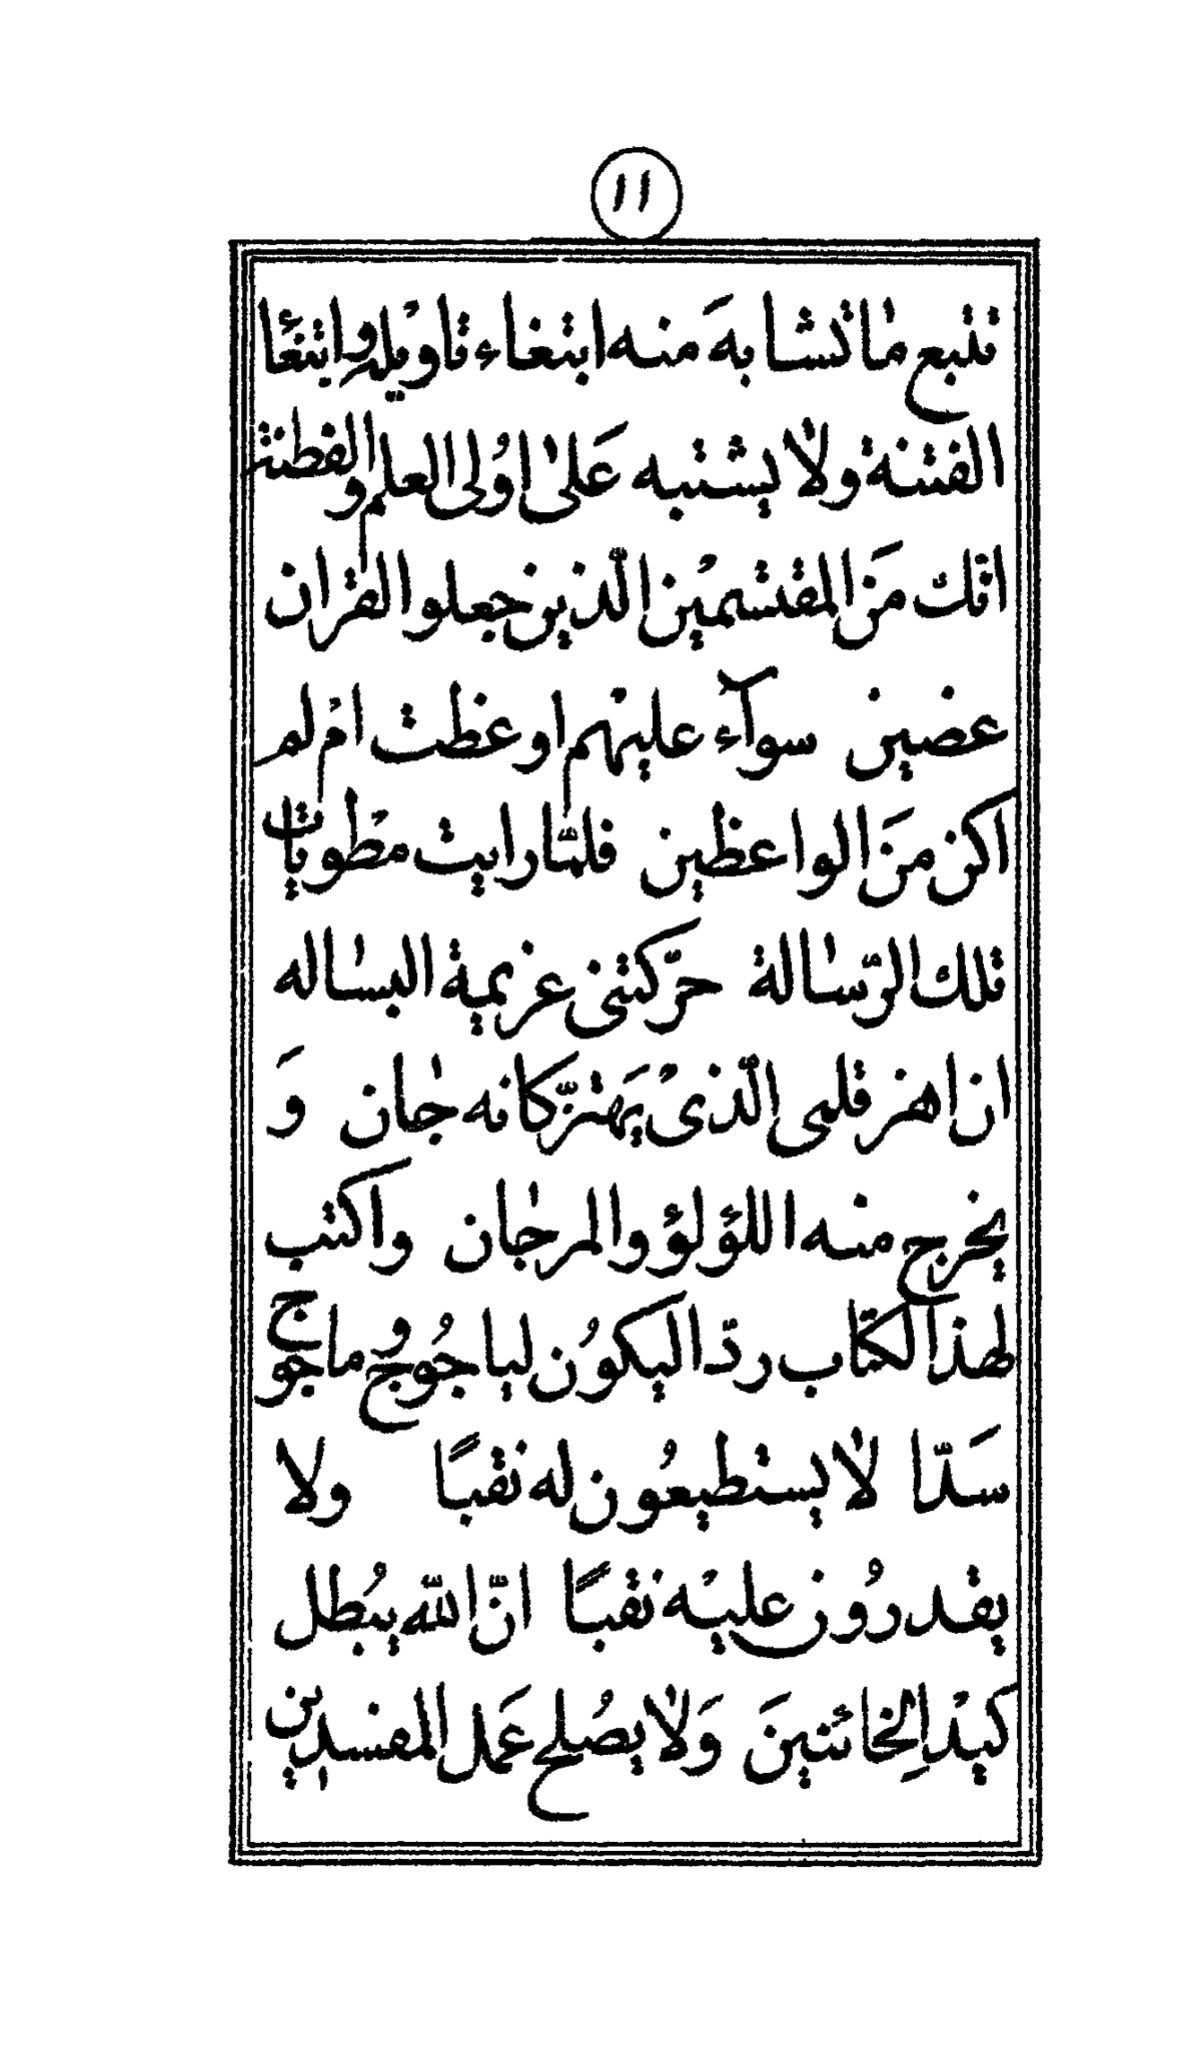 ١١
تتبع ما تشابه منه ابتغاء تاويله وابتغا
الفتنة ولا يشتبه على اولى العلم والفطنة
انّك من المقتسمين الّذين جعلوا القران
عضين سوآء عليهم اوعظت ام لم
اكن من الواعظين فلمّا رايت مطويات
تلك الرّسالة حرّكتنى عزيمة البساله
ان اهز قلمى الّذى يهتزّ كانه جان و
يخرج منه اللؤلؤ والمرجان واكتب
لهذا الكتاب ردّا ليكون لياجوج وماجوج
سدّا لا يستطيعون له نقبًا ولا
يقدرون عليه نقبًا انّ الله يبطل
كيد الخائنين ولا يصلح عمل المفسدين